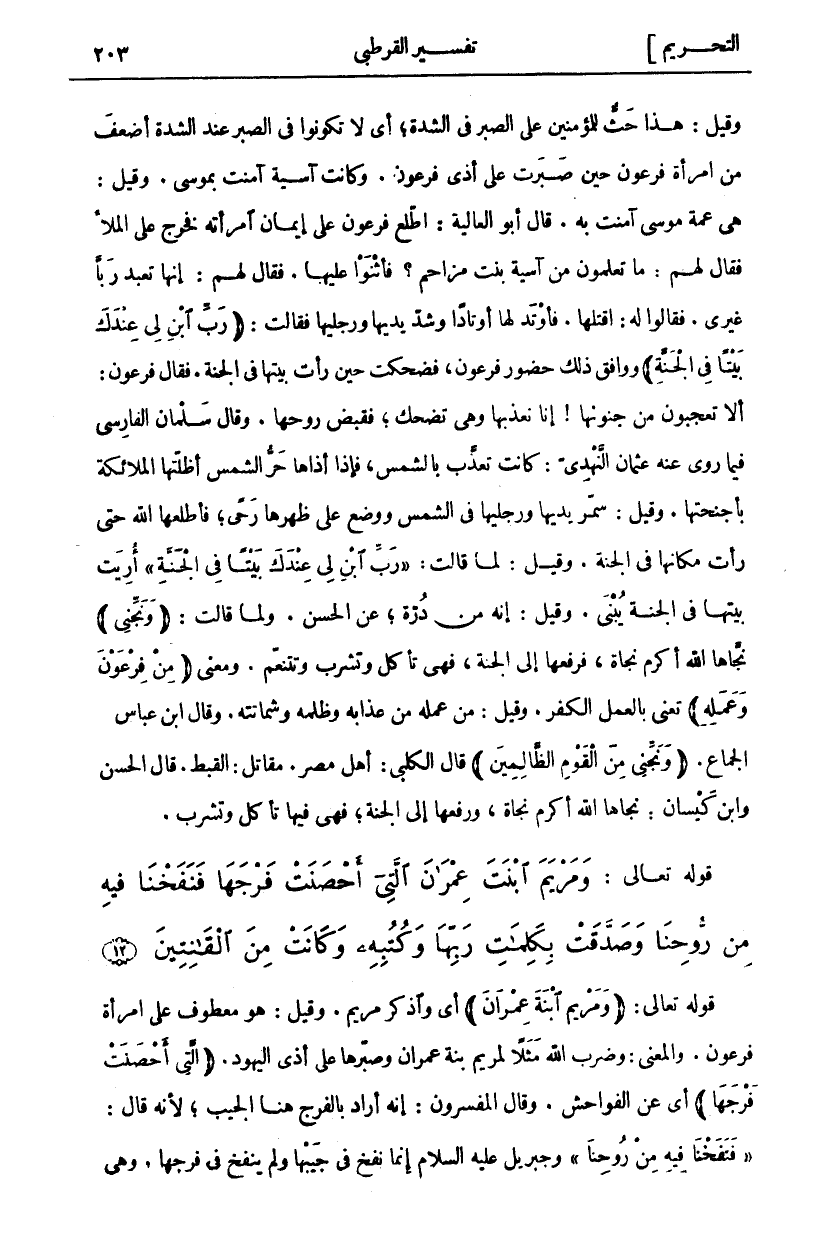 التحريم]
تفسير القرطبى
٢٠٣
وقيل : هذا حَثٌّ للمؤمنين على الصبر فى الشدة؛ أى لا تكونوا فى الصبر عند الشدة أضعفَ
من امرأة فرعون حين صَبَرت على أذى فرعون . وكانت آسية آمنت بموسى . وقيل :
هى عمة موسى آمنت به . قال أبو العالية : اطّلع فرعون على إيمان آمرأته فخرج على الملأ
فقال لهم : ما تعلمون من آسية بنت مزاحم ؟ فأثْنَوْا عليها . فقال لهم : إنها تعبد رَبًّا
غيرى . فقالوا له : اقتلها . فأوْتَد لها أوتادًا وشدّ يديها ورجليها فقالت : ﴿ رَبِّ ٱبْنِ لِى عِنْدَكَ
بَيْتًا فِى الْجَنَّةِ﴾ ووافق ذلك حضور فرعون، فضحكت حين رأت بيتها فى الجنة . فقال فرعون :
ألا تعجبون من جنونها ! إنا نعذبها وهى تضحك ؛ فقبض روحها . وقال سَلْمان الفارسى
فيما روى عنه عثمان النَّهْدِىّ : كانت تعذَّب بالشمس، فإذا أذاها حَرُّ الشمس أظلّتها الملائكة
بأجنحتها . وقيل : سمّر يديها ورجليها فى الشمس ووضع على ظهرها رَحًى؛ فأطلعها الله حتى
رأت مكانها فى الجنة . وقيل : لما قالت: «رَبِّ ٱبْنِ لِى عِنْدَكَ بَيْتًا فِى الْجَنَّةِ» أُرِيَت
بيتها فى الجنة يُبْنَى . وقيل : إنه من دُرّة ؛ عن الحسن . ولما قالت : ﴿ وَنَجِّنِى ﴾
نجّاها الله أكرم نجاة ، فرفعها إلى الجنة ، فهى تأكل وتشرب وتتنعّم . ومعنى ﴿ مِنْ فِرْعَوْنَ
وَعَمَلِهِ ﴾ تعنى بالعمل الكفر . وقيل : من عمله من عذابه وظلمه وشماتته . وقال ابن عباس
الجماع . ﴿ وَنَجِّنِى مِنَ الْقَوْمِ الظَّالِمِينَ ﴾ قال الكلبى : أهل مصر . مقاتل : القبط . قال الحسن
وابن كَيْسان : نجاها الله أكرم نجاة ، ورفعها إلى الجنة ؛ فهى فيها تأكل وتشرب .
قوله تعالى : وَمَرْيَمَ ٱبْنَتَ عِمْرَٰنَ ٱلَّتِىٓ أَحْصَنَتْ فَرْجَهَا فَنَفَخْنَا فِيهِ
مِن رُّوحِنَا وَصَدَّقَتْ بِكَلِمَٰتِ رَبِّهَا وَكُتُبِهِۦ وَكَانَتْ مِنَ ٱلْقَٰنِتِينَ ﴿١٢﴾
قوله تعالى : ﴿ وَمَرْيَم ٱبْنَةَ عِمْرَانَ ﴾ أى وٱذكر مريم . وقيل : هو معطوف على امرأة
فرعون . والمعنى : وضرب الله مَثَلًا لمريم بنة عمران وصبرها على أذى اليهود . ﴿ الَّتِى أَحْصَنَتْ
فَرْجَهَا ﴾ أى عن الفواحش . وقال المفسرون : إنه أراد بالفرج هنا الجيب ؛ لأنه قال :
« فَنَفَخْنَا فِيهِ مِنْ رُوحِنَا » وجبريل عليه السلام إنما نفخ فى جَيْبها ولم ينفخ فى فرجها . وهى